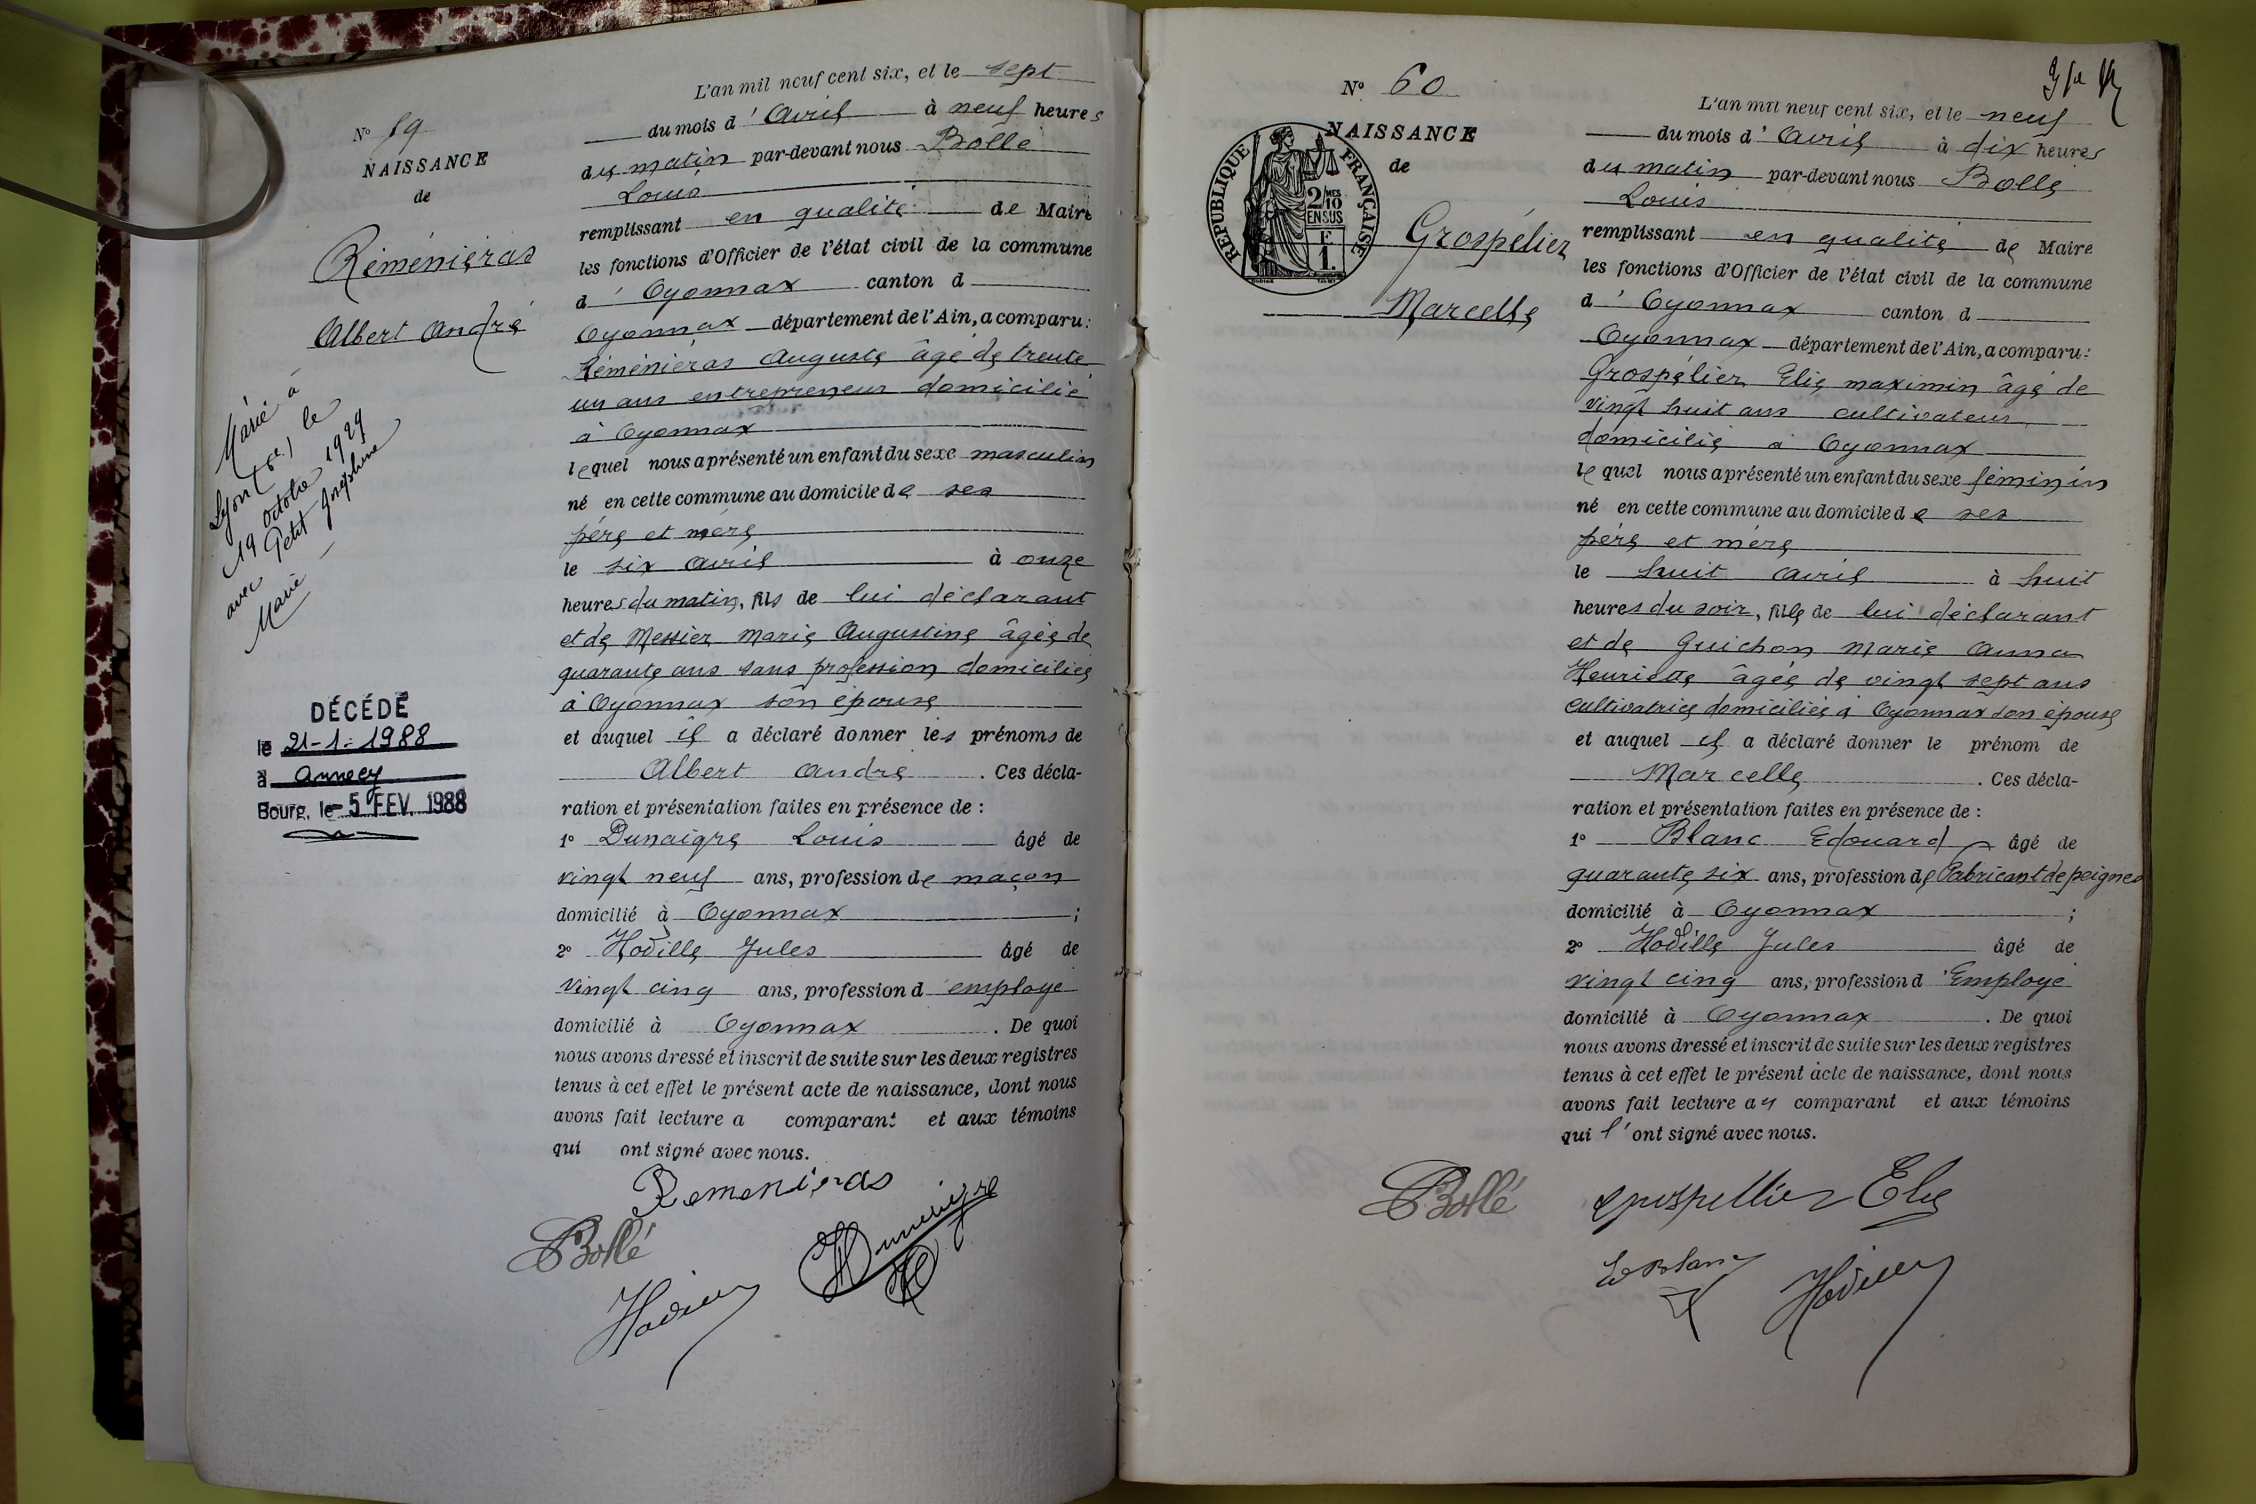 L'an mil neuf cent six, et le sept
N° 59
du mois d' Avril à neuf heures
NAISSANCE
du matin par-devant nous Bollé
de
Louis
remplissant en qualité de Maire
Réméniéras
les fonctions d'Officier de l'état civil de la commune
d' Oyonnax canton d
Albert André
Oyonnax département de l'Ain, a comparu:
Réméniéras Auguste âgé de trente
un ans entrepreneur domicilié
à Oyonnax
lequel nous a présenté un enfant du sexe masculin
né en cette commune au domicile de ses
père et mère
le six avril à onze
heures du matin, fils de lui déclarant
et de Messier Marie Augustine âgée de
quarante ans sans profession domiciliée
à Oyonnax son épouse
et auquel il a déclaré donner les prénoms de
Albert André . Ces décla-
ration et présentation faites en présence de :
1° Dunaigre Louis âgé de
vingt neuf ans, profession de maçon
domicilié à Oyonnax ;
2° Hodille Jules âgé de
vingt cinq ans, profession d' employé
domicilié à Oyonnax . De quoi
nous avons dressé et inscrit de suite sur les deux registres
tenus à cet effet le présent acte de naissance, dont nous
avons fait lecture a comparant et aux témoins
qui ont signé avec nous.
Remenieras
Bollé
Dunaigre
Hodille
Marié à
Lyon (6e) le
19 octobre 1929
avec Petit Joséphine
Marie
DÉCÉDÉ
le 21-1-1988
à Annecy
Bourg, le - 5 FEV. 1988
N° 60
NAISSANCE
de
RÉPUBLIQUE FRANÇAISE
2/10 MES
EN SUS
F
1.
Grospélier
Marcelle
L'an mil neuf cent six, et le neuf
du mois d' avril à dix heures
du matin par-devant nous Bollé
Louis
remplissant en qualité de Maire
les fonctions d'Officier de l'état civil de la commune
d' Oyonnax canton d
Oyonnax département de l'Ain, a comparu:
Grospélier Elie maximin âgé de
vingt huit ans cultivateur
domicilié à Oyonnax
lequel nous a présenté un enfant du sexe féminin
né en cette commune au domicile de ses
père et mère
le huit avril à huit
heures du soir, fille de lui déclarant
et de Guichon Marie Anna
Henriette âgée de vingt sept ans
cultivatrice domiciliée à Oyonnax son épouse
et auquel il a déclaré donner le prénom de
Marcelle . Ces décla-
ration et présentation faites en présence de :
1° Blanc Edouard âgé de
quarante six ans, profession de Fabricant de peignes
domicilié à Oyonnax ;
2° Hodille Jules âgé de
vingt cinq ans, profession d' Employé
domicilié à Oyonnax . De quoi
nous avons dressé et inscrit de suite sur les deux registres
tenus à cet effet le présent acte de naissance, dont nous
avons fait lecture au comparant et aux témoins
qui l' ont signé avec nous.
Bollé
Grospellier Elie
Ed Blanc
Hodille